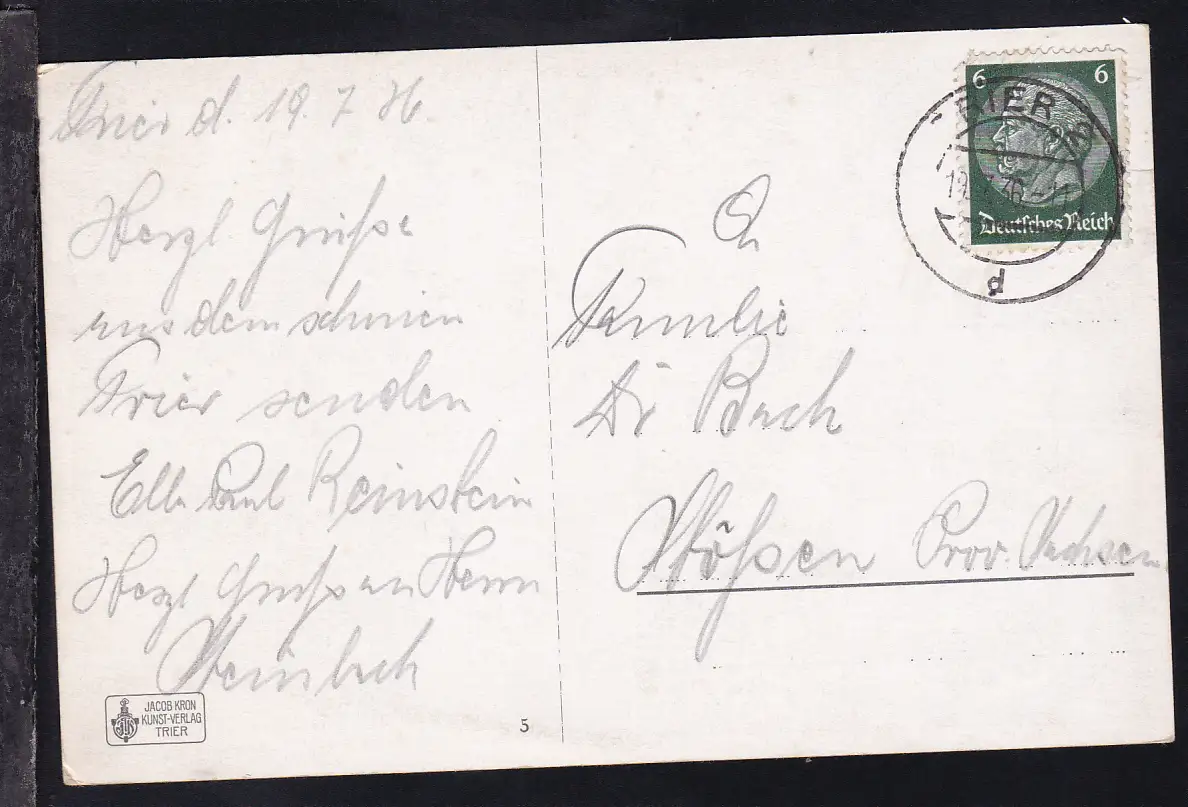 Trier d. 19. 7. 36.
Herzl Grüße
aus dem schönen
Trier senden
Ella Paul Reinstein
Herzl Gruß an Herrn
Steinbach
JACOB KRON
KUNST-VERLAG
TRIER
5
6 6
Deutsches Reich
TRIER 2
19.7.36
d
An
Familie
Dr Bach
Stößen Prov. Sachsen